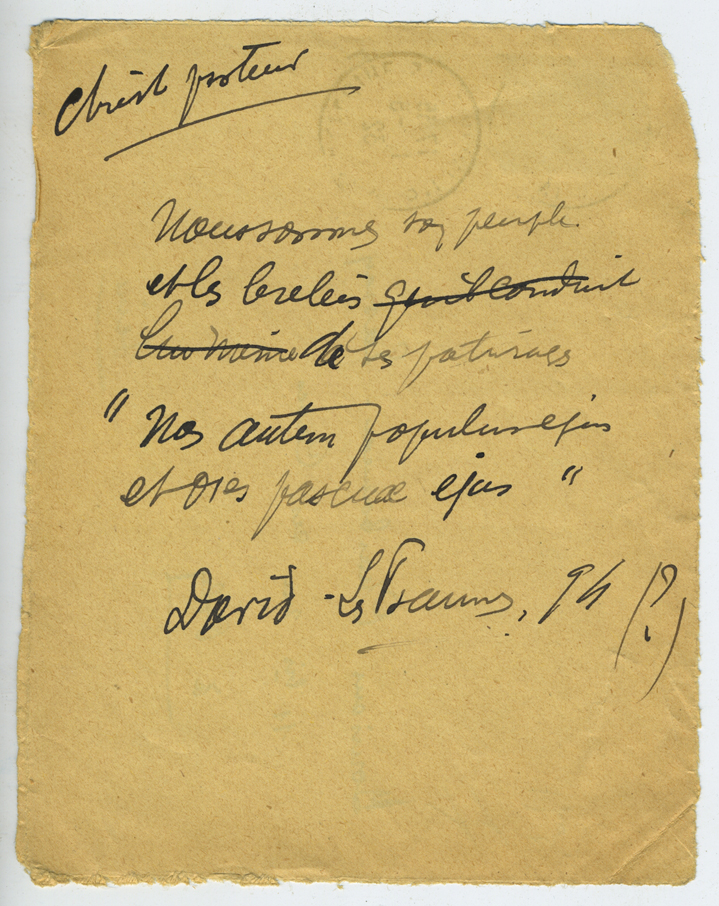 Christ pasteur
Nous sommes son peuple
et les brebis ~~qu'il conduit~~
~~lui même~~ de ses pâturages
" Nos autem populus ejus
et oves pascuae ejus "
David - Les Psaumes, 94 (?)